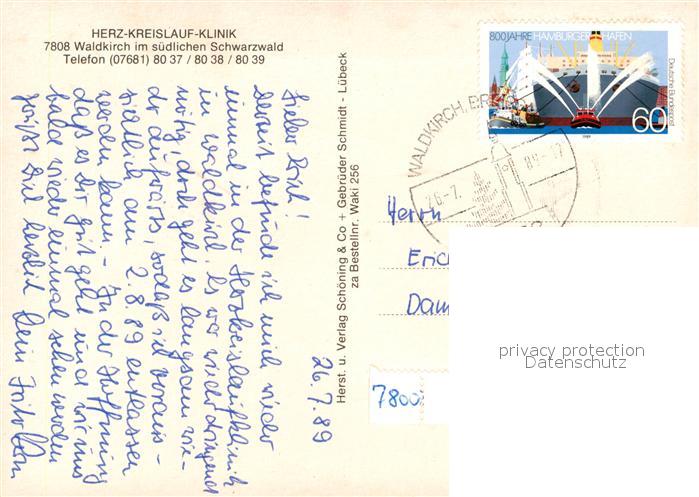 HERZ-KREISLAUF-KLINIK
7808 Waldkirch im südlichen Schwarzwald
Telefon (07681) 80 37 / 80 38 / 80 39
26.7.89
Lieber Erich!
Derzeit befinde ich mich wieder
einmal in der Herzkreislaufklinik
in Waldkirch. Es war wieder dringend
nötig, doch geht es langsam wie-
der aufwärts, sodaß ich voraus-
sichtlich am 2.8.89 entlassen
werden kann. - In der Hoffnung
daß es Dir gut geht und wir uns
bald wieder einmal sehen werden
grüßt Dich herzlich Dein
Herst. u. Verlag Schöning & Co + Gebrüder Schmidt - Lübeck
za Bestellnr. Waki 256
800 JAHRE HAMBURGER HAFEN
Deutsche Bundespost
60
1989
WALDKIRCH, BR
26.-7.
89-17
Herrn
Erich
Dam
7800
privacy protection
Datenschutz